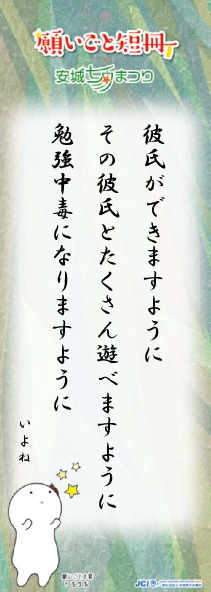 願いごと短冊
安城七夕まつり
彼氏ができますように
その彼氏とたくさん遊べますように
勉強中毒になりますように
いよね
JCI